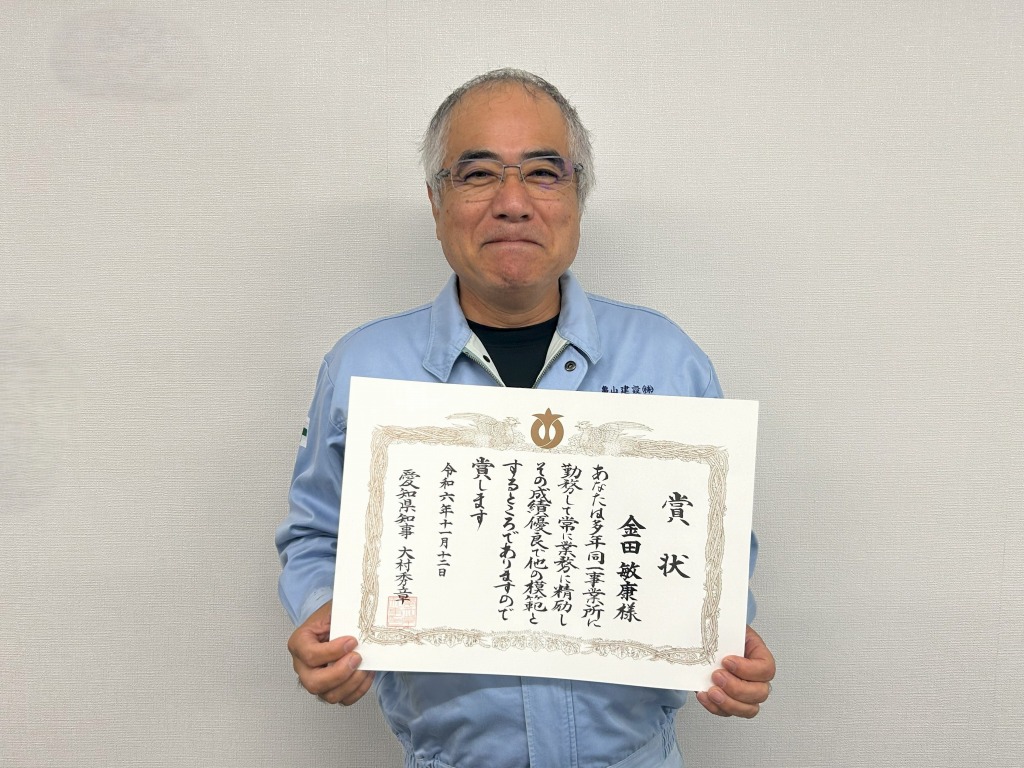 亀山建設㈱
賞状
金田敏康様
あなたは多年同一事業所に
勤務して常に業務に精励し
その成績優良で他の模範と
するところでありますので
賞します
令和六年十一月十二日
愛知県知事 大村秀章